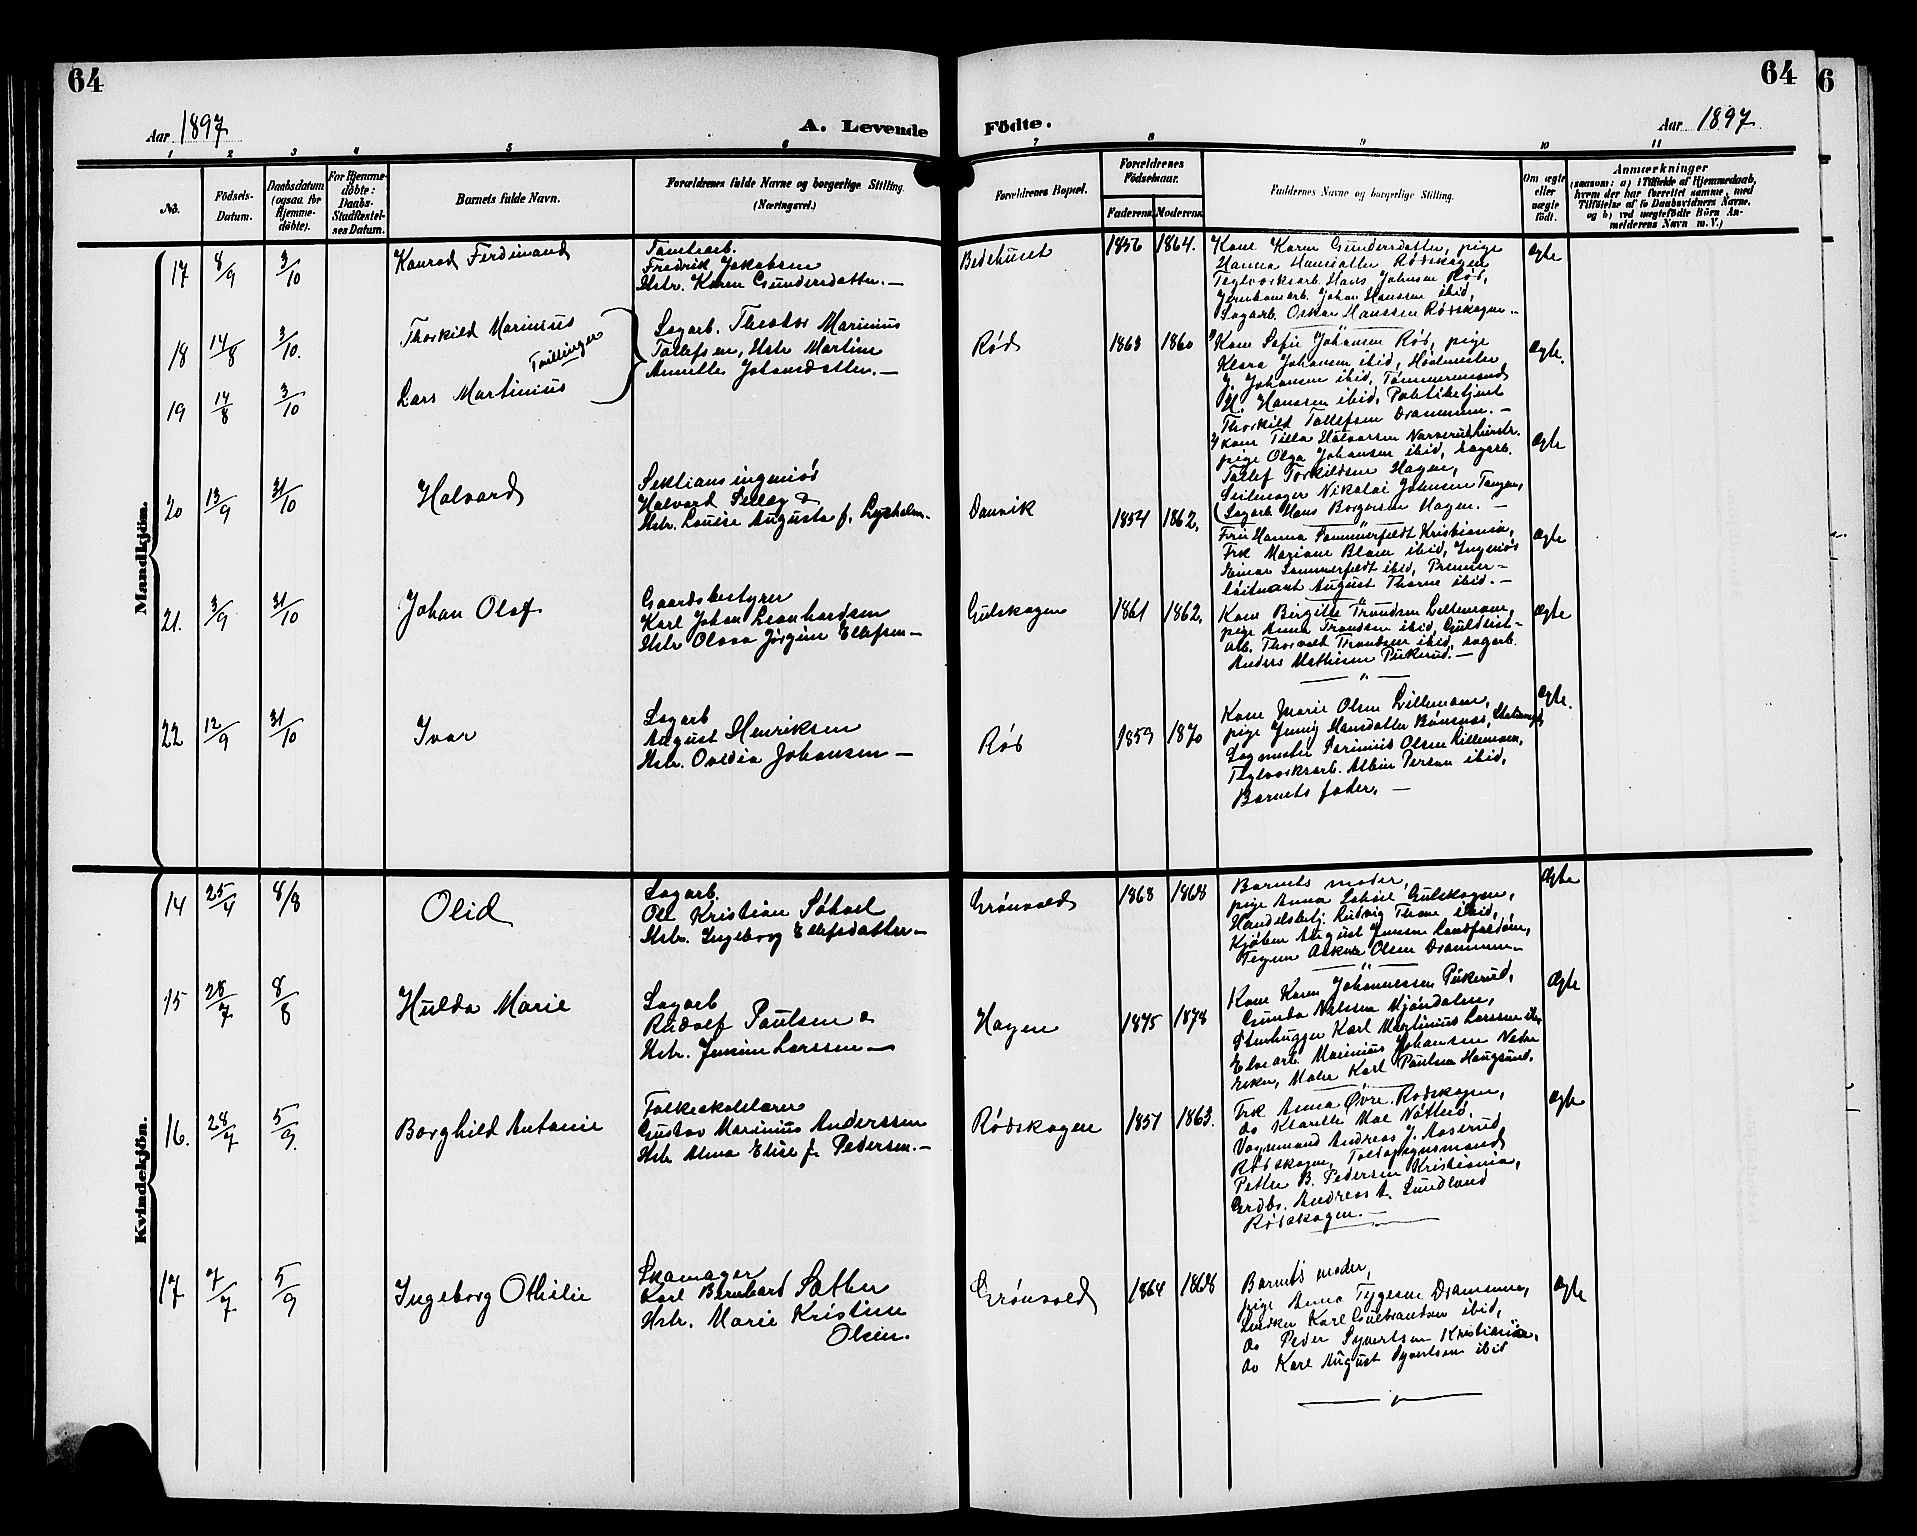 64
64
6
Aar 1897
A. Levende Födte.
Aar 1897
1 2 3 4 5 6 7 8 9 10 11
No.
Födsels-Datum.
Daabsdatum (ogsaa for Hjemme-döbte).
For Hjemme-döbte: Daabs-Stadfæstel-ses Datum.
Barnets fulde Navn.
Forældrenes fulde Navne og borgerlige Stilling. (Næringsvei.)
Forældrenes Bopæl.
Forældrenes Födselsaar.
Faderens. Moderens.
Faddernes Navne og borgerlige Stilling.
Om ægte eller uægte født.
Anmærkninger
(saasom: a) i Tilfælde af Hjemmedaab,
hvem der har forrettet samme, med
Tilföielse af to Daabsvidners Navne,
og b) ved uægtefödte Börn An-
melderens Navn m. V.)
Mandkjöm.
17 8/9 3/10 Konrad Ferdinand
Tomtearb.
Fredrik Jakobsen
Hstr. Karen Gundersdatter. —
Bedehuset 1856 1864.
Kone Karen Gundersdatter, pige
Hanna Hansdatter Rødskogen
Teglværksarb. Hans Johnsen Rød,
Jernbanearb. Johan Hanssen ibid,
Sagarb. Oskar Hanssen Rødskogen. —
Ægte
18 14/8 3/10. Thorkild Marinius
Tvillinger
19 14/8 3/10 Lars Martinius
Sagarb. Theodor Marinius
Tollefsen, Hstr Martine
Annette Johansdatter. —
Rød 1863 1860
Kone Sofie Johansen Rød, pige
Klara Johansen ibid, Høvlmester
J. Johansen ibid, Tømmermand
H. Hanssen ibid, Politibetjent
Thorkild Tollefsen Drammen. —
2/ Kone Tilla Halvorsen Narverud
pige Olga Johansen ibid, sagarb.
Tollef Torkildsen Hagen,
Seilmager Nikolai Johnsen Tangen,
Sagarb Hans Borgersen Hagen. —
Ægte.
Ægte
20 13/9 31/10 Halvard
Sektionsingeniør
Halvard
Hstr. Louise Augusta f. Lysholm. —
Danvik 1854 1862.
Fru Hanna Sommerfeldt Kristiania,
Frk Mariane ibid, Ingeniør
Einar Sommerfeldt ibid, Premier-
løitnant August Thorne ibid. —
Ægte
21. 3/9 31/10 Johan Olaf
Gaardsbestyrer
Karl Johan Leonhardsen
Hstr Olava Jørgine Ellefsen —
Gulskogen 1861 1862.
Kone Birgitte Trondsen Lillemoen,
pige Anna Trondsen ibid, Guldlist-
arb. Thorvald Trondsen ibid, sagarb.
Anders Mathisen Pukerud. —
Ægte
22 12/9 31/10 Ivar
Sagarb
August Henriksen
Hstr. Ovedia Johansen —
Rød 1859 1870
Kone Marie Olsen Lillemoen,
pige Jenny Hansdatter Bønsnæs,
Sagmester Olsen Lillemoen,
Teglværksarb. Albin Person ibid,
Barnets fader. —
Ægte.
Kvindekjöm.
14 25/4 8/8 Olid
Sagarb.
Ole Kristian
Hstr. Ingeborg Ellefsdatter —
Grønvold 1863 1868
Barnets moder,
pige Anna Gulskogen,
Handelsbetj. Ludvig Thone ibid,
Kjøbm August Jensen Landfaldøen,
Olsen Drammen —
Ægte
15 28/7 8/8 Hulda Marie
Sagarb
Rudolf Paulsen &
Hstr. Jensine Larssen —
Hagen 1875 1878
Kone Karen Johannessen Pukerud,
Gunda Nilssen Mjøndalen,
Stenhugger Karl Martinius Larssen ibid,
Elvearb. Marinius Johansen Nedre
Eker, Maler Karl Paulsen Haugsund.
Ægte
16. 28/7 5/9. Borghild Antonie
Folkeskolelærer
Gustav Marinius Anderssen
Hstr Alma Elise f. Pedersen. —
Rødskogen 1857 1863.
Frk Anna Øvre Rødskogen,
do Klarette Moe Nøtterø,
Vognmand Andreas J. Aaserud
Rødskogen, Toldopsynsmand
Petter B. Pedersen Kristiania,
Grdbr. Andreas A. Lundland
Rødskogen. —
Ægte
17 7/7 5/9 Ingeborg Othilie
Skomager
Karl Bernhard Sæther
Hstr. Marie Kristine
Olsen.
Grønvold 1864 1868
Barnets moder,
pige Anna Tygesen Drammen,
Snedker Karl Gulbrandsen ibid,
do Peder Syvertsen Kristiania,
do Karl August Syvertsen ibid
Ægte